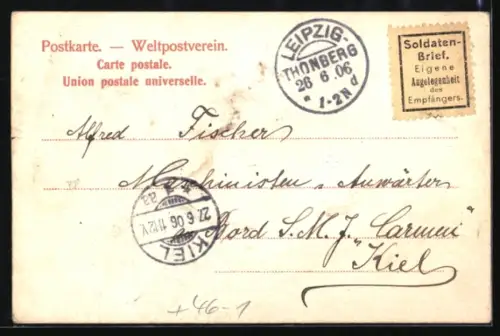 Postkarte. — Weltpostverein.
Carte postale.
Union postale universelle.
LEIPZIG-
THONBERG
26 6 06
* 1-2N d
Soldaten-
Brief.
Eigene
Angelegenheit
des
Empfängers.
Alfred Fischer
Maschinisten Anwärter
an Bord S. M. J. Carmen
"Kiel"
KIEL
27 6 06 11-12V.
* * aa
+46-1